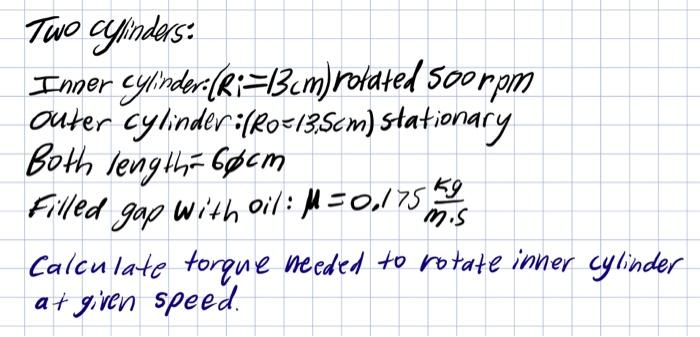 Two cylinders:
Inner cylinder:(Ri=13cm) rotated 500rpm
outer cylinder:(Ro=13,5cm) stationary
Both length=60cm
Filled gap with oil: μ=0.175 kg/m.s
Calculate torque needed to rotate inner cylinder
at given speed.